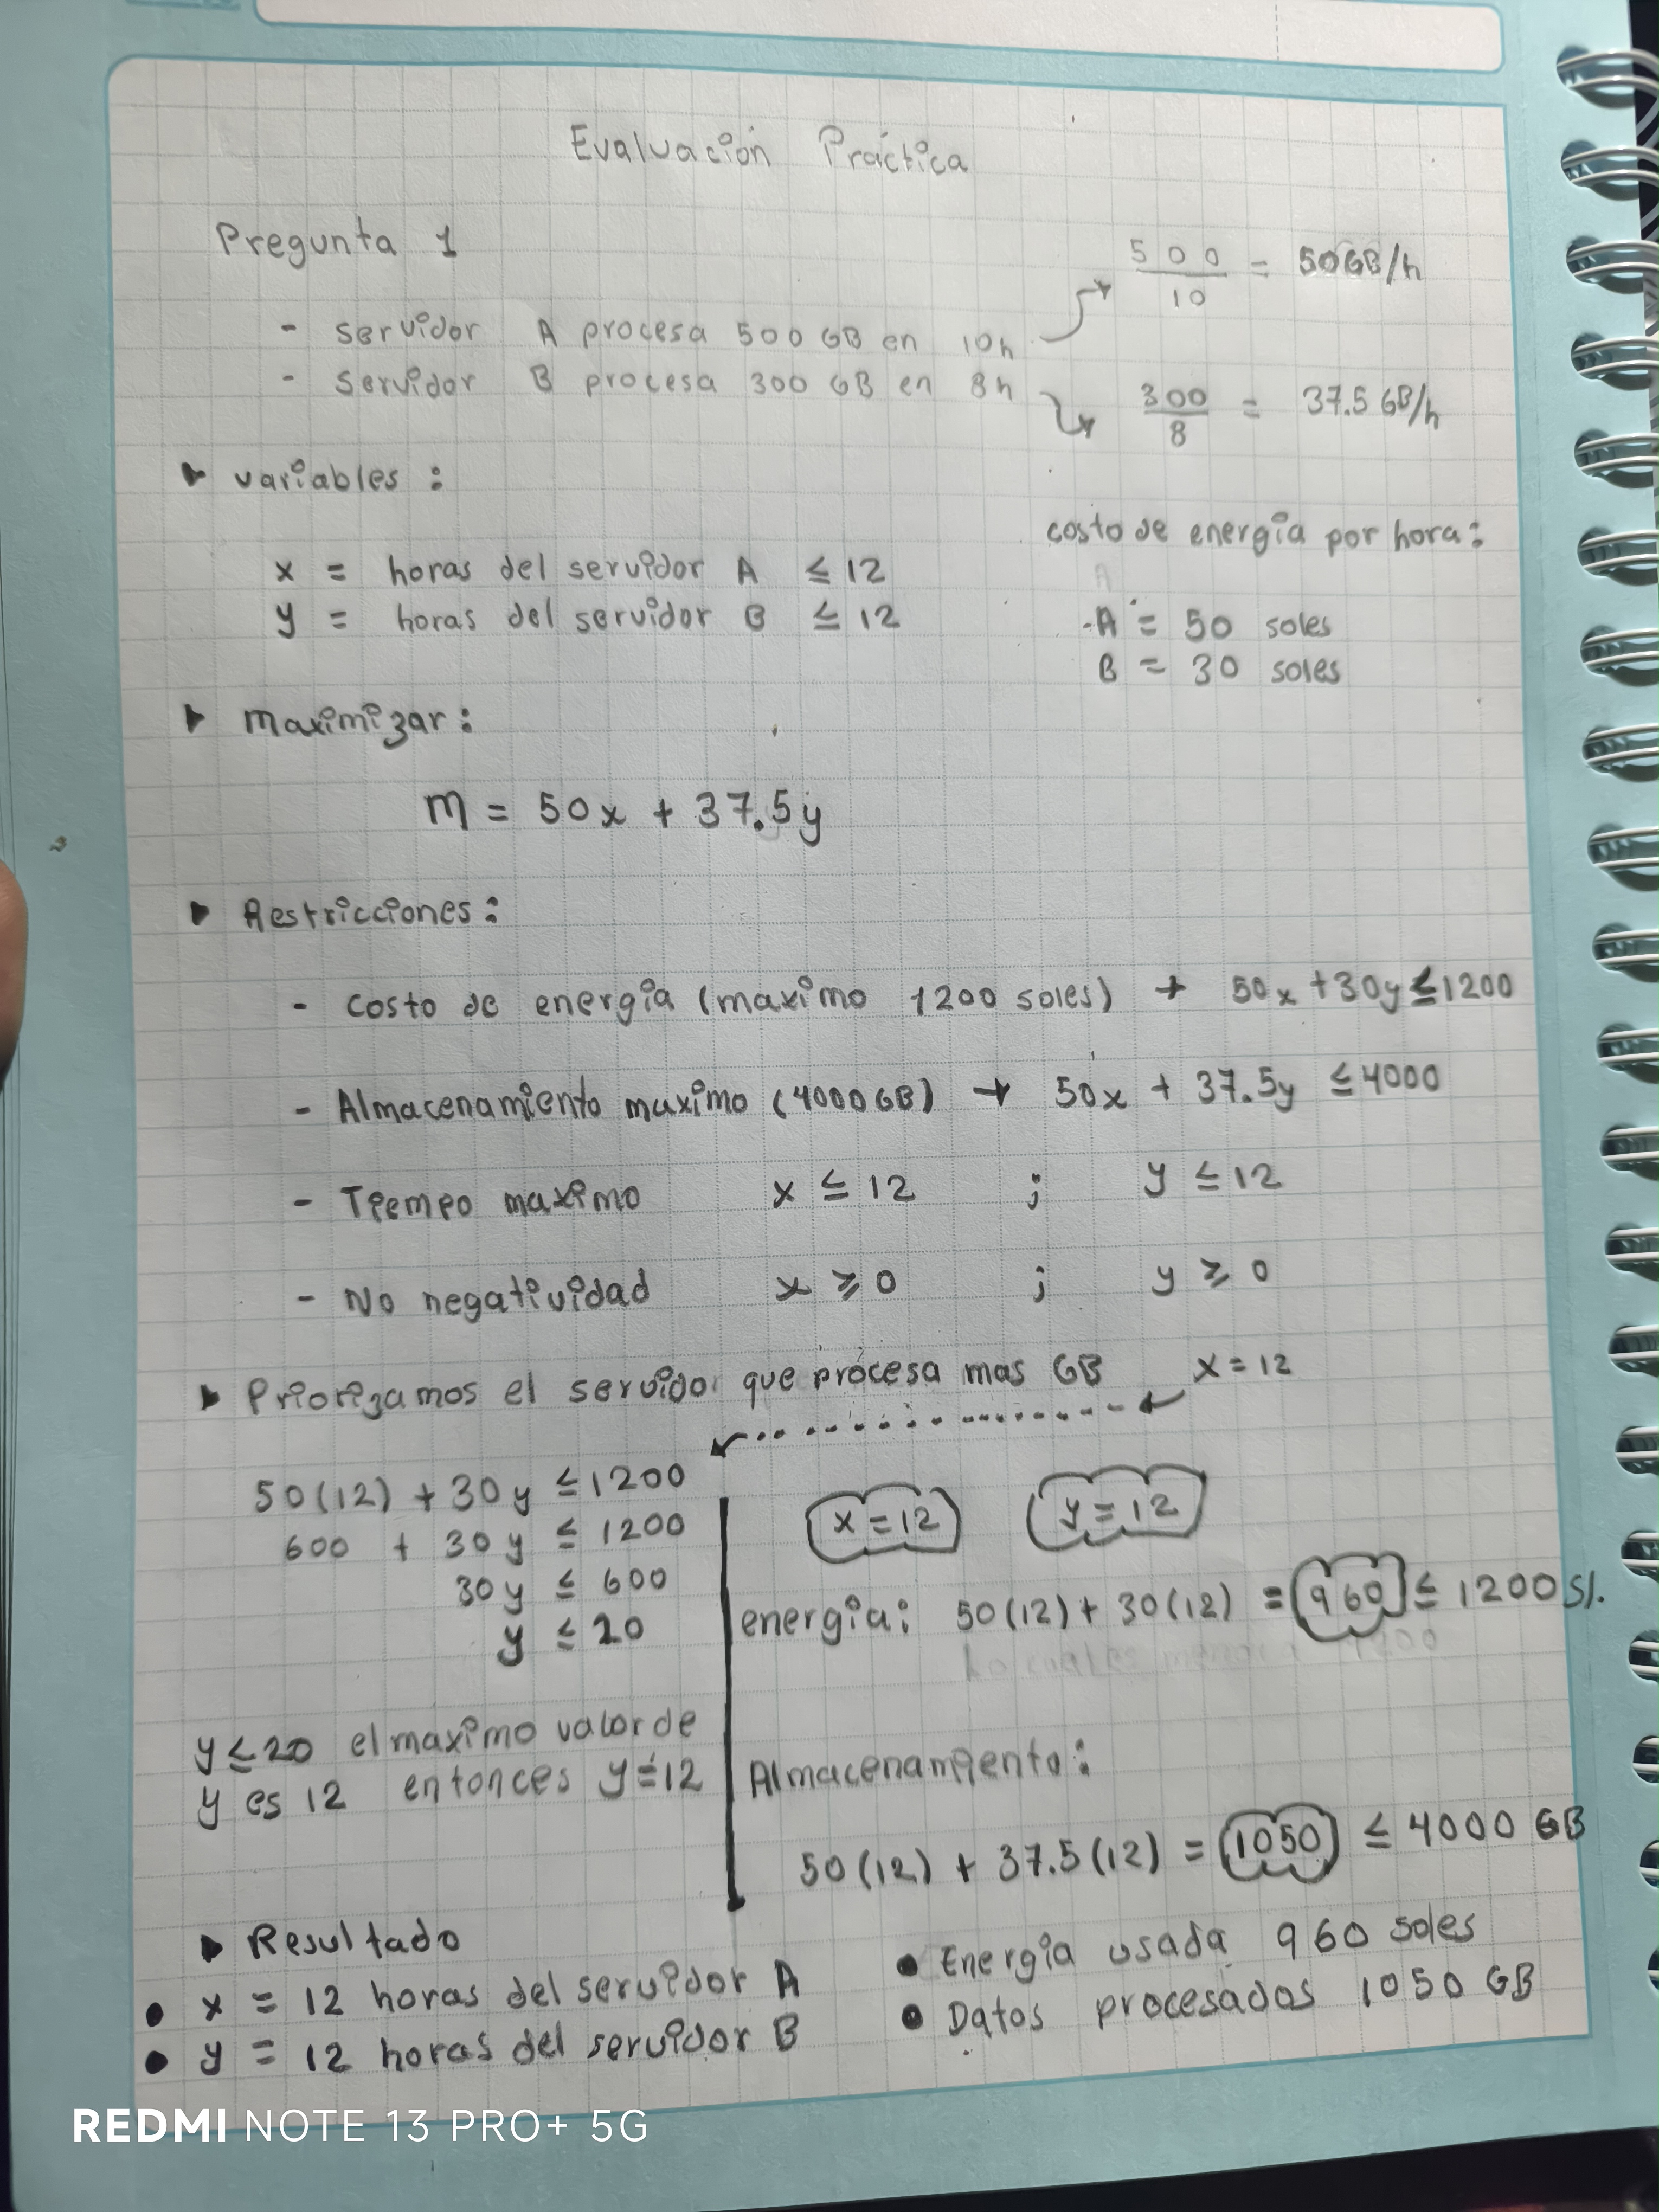 Evaluación Práctica
Pregunta 1
- servidor A procesa 500 GB en 10h
500/10 = 50GB/h
- Servidor B procesa 300 GB en 8h
300/8 = 37.5 GB/h
variables :
x = horas del servidor A ≤ 12
y = horas del servidor B ≤ 12
costo de energía por hora:
-A = 50 soles
B = 30 soles
Maximizar:
M = 50x + 37.5y
Restricciones:
- Costo de energía (maximo 1200 soles) → 50x + 30y ≤ 1200
- Almacenamiento maximo (4000 GB) → 50x + 37.5y ≤ 4000
- Tiempo maximo x ≤ 12 ; y ≤ 12
- No negatividad x ≥ 0 ; y ≥ 0
Priorizamos el servidor que procesa mas GB x = 12
50(12) + 30y ≤ 1200
600 + 30y ≤ 1200
30y ≤ 600
y ≤ 20
y ≤ 20 el maximo valor de
y es 12 entonces y = 12
x = 12 y = 12
energia: 50(12) + 30(12) = 960 ≤ 1200 S/.
Almacenamiento:
50(12) + 37.5(12) = 1050 ≤ 4000 GB
Resultado
• x = 12 horas del servidor A
• y = 12 horas del servidor B
• Energía usada 960 soles
• Datos procesados 1050 GB
REDMI NOTE 13 PRO+ 5G